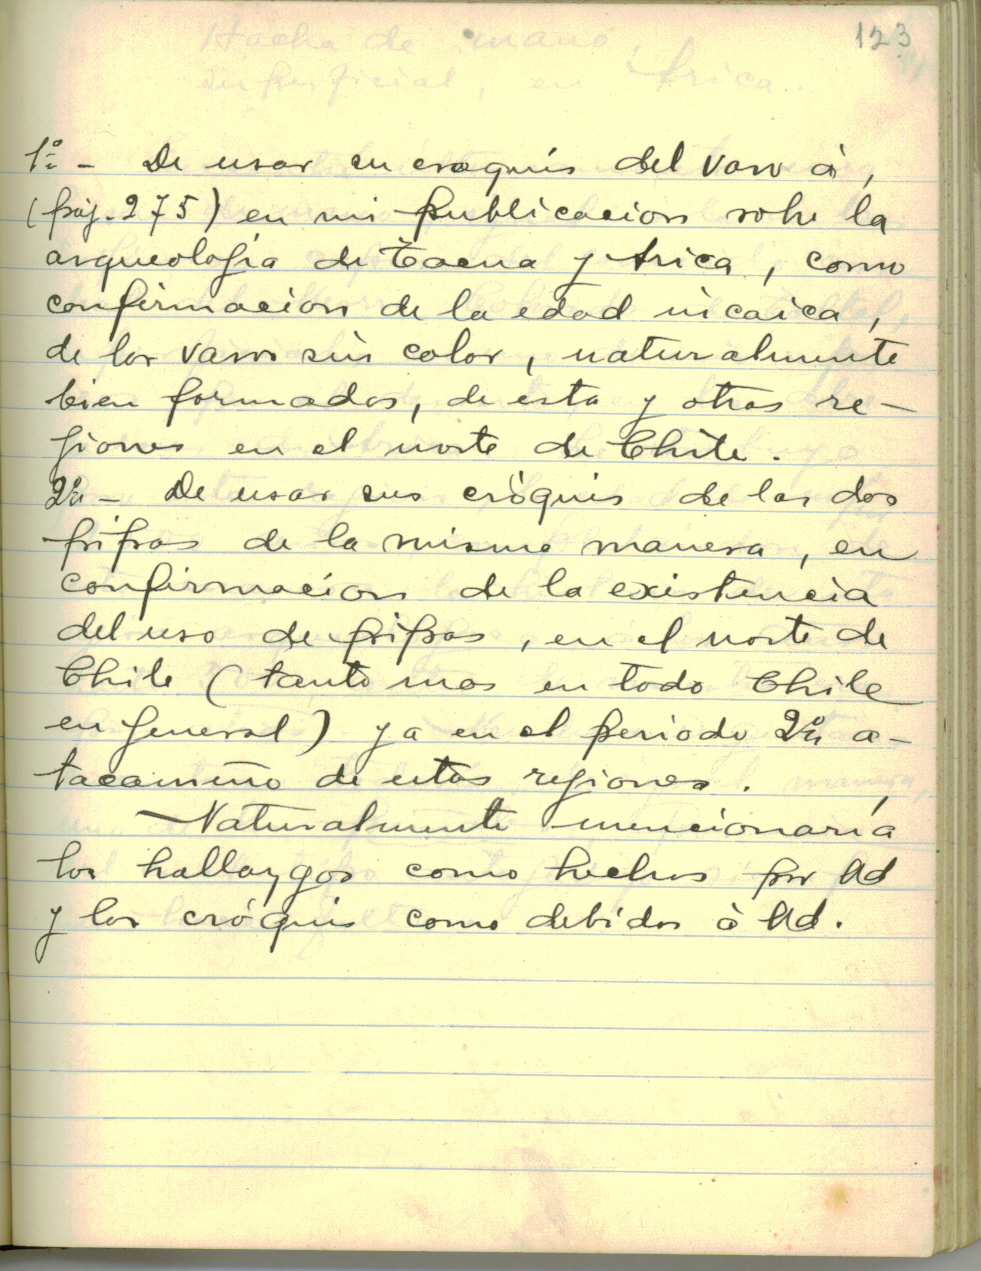 123
Hacha de mano,
superficial, en Arica.
1º - De usar su croquis del vaso à,
(páj. 275) en mi publicacion sobre la
arqueolojía de Tacna y Arica, como
confirmacion de la edad incaica,
de los vasos sin color, naturalmente
bien formados, de esta y otras re-
jiones en el norte de Chile.
2º - De usar sus cróquis de las dos
pipas de la misma manera, en
confirmacion de la existencia
del uso de pipas, en el norte de
Chile (tanto mas en todo Chile
en jeneral) ya en el periodo 2º a-
tacameño de estas rejiones.
Naturalmente mencionaría
los hallazgos como hechos por Ud
y los cróquis como debidos à Ud.